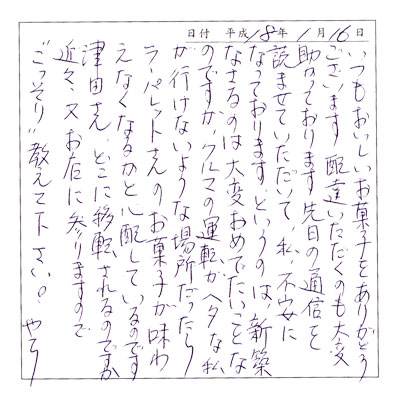 日付 平成18年1月16日
いつもおいしいお菓子をありがとう
ございます 配達いただくのも大変
助かっております 先日の通信を
読ませていただいて、私、不安に
なっております。というのは、新築
なさるのは大変おめでたいことな
のですが、クルマの運転がヘタな私
が行けないような場所だったら
ラ・パレットさんのお菓子が味わ
えなくなるかと心配しているのです
津田さん、どこに移転されるのですか
近々、又お店に参りますので
"ごっそり"教えて下さい。